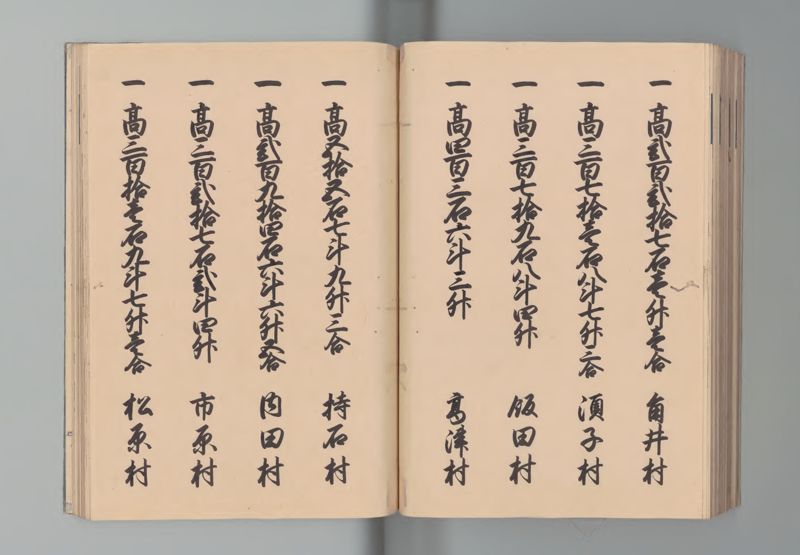 一 高弐百弐拾七石壱升壱合 角井村
一 高三百七拾壱石八斗七升二合 須子村
一 高三百七拾九石八斗四升 飯田村
一 高四百三石六斗三升 高津村
一 高五拾五石七斗九升三合 持石村
一 高弐百九拾四石六斗六升五合 内田村
一 高三百弐拾七石弐斗四升 市原村
一 高三百拾壱石九斗七升壱合 松原村